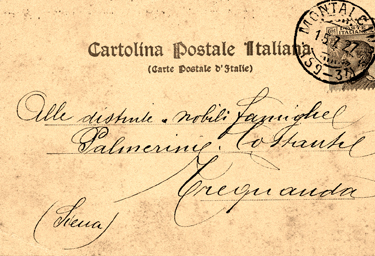 Cartolina Postale Italiana
(Carte Postale d'Italie)
MONTALCI
Alle distinte e nobili famiglie
Palmerini Costanti
Trequanda
(Siena)